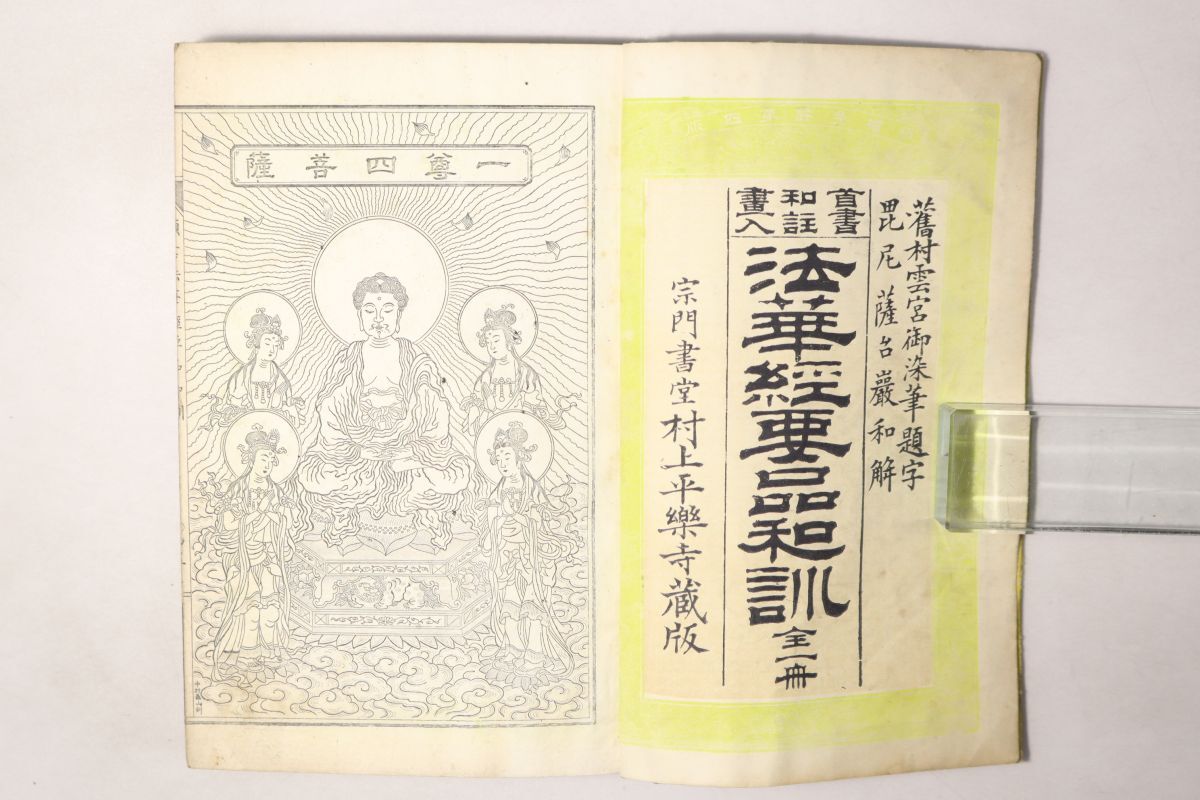 舊村雲宮御染筆題字
毘尼薩台巖和解
首書
和註
畫入
法華經要品和訓 全一冊
宗門書堂 村上平樂寺藏版
一尊四菩薩